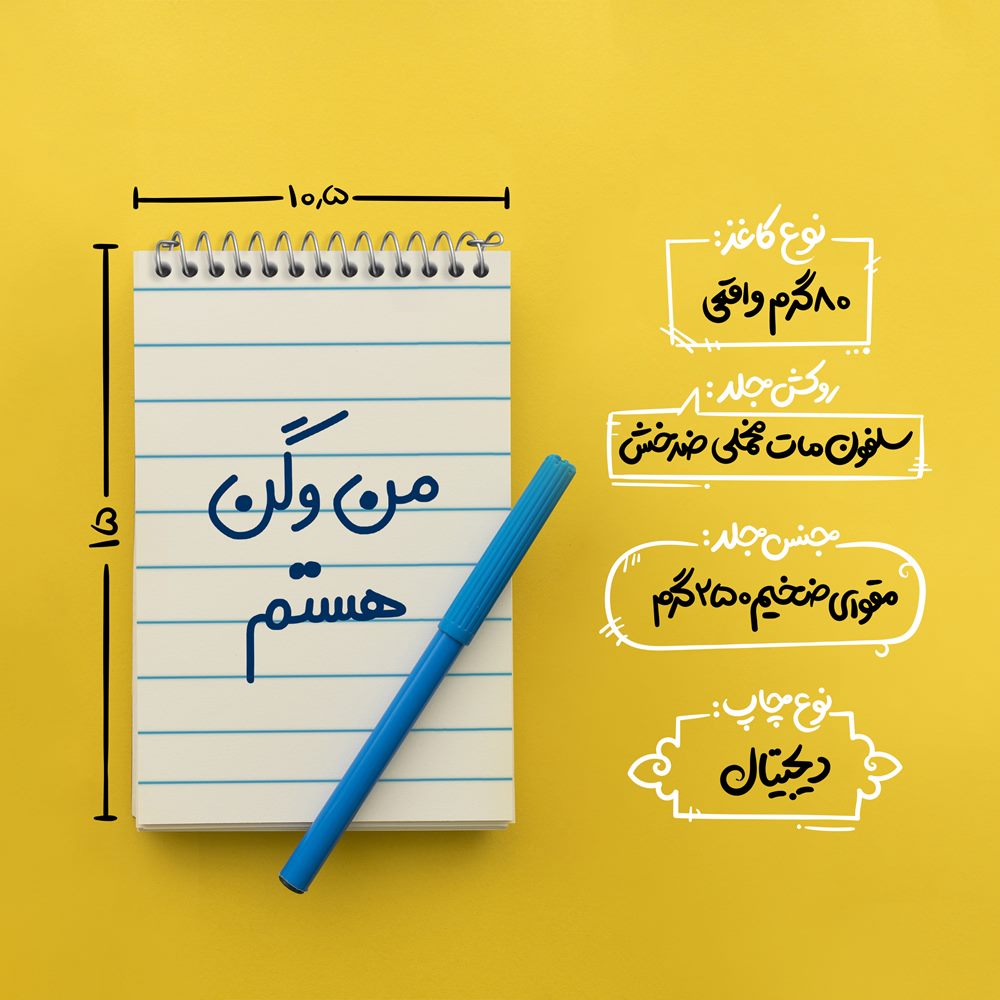 ۱۰٫۵
۱۵
من وگَن
هستم
نوع کاغذ:
۸۰گرم واقعی
روکش جلد:
سلفون مات مخملی ضدخش
جنس جلد:
مقوای ضخیم ۲۵۰گرم
نوع چاپ:
دیجیتال